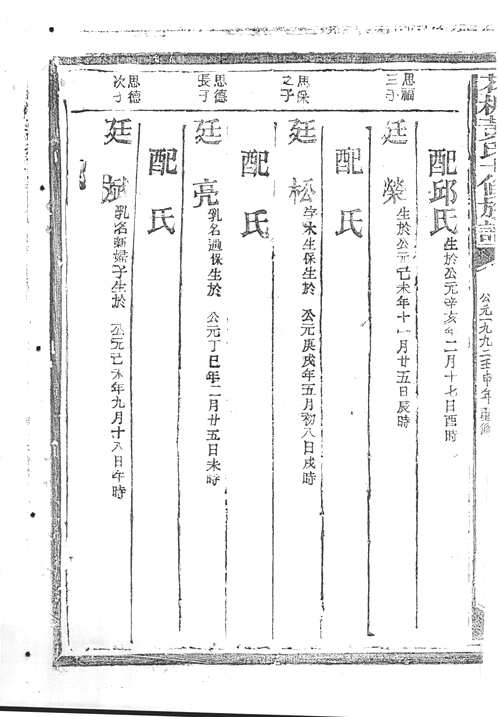 黃氏 修族譜
公元一九九二壬申年重修
配邱氏 生於公元辛亥年二月十七日酉時
思福三子
廷榮 生於公元己未年十一月廿五日辰時
配 氏
思榮之子
廷松 字水生保生於 公元庚戌年五月初八日戌時
配 氏
思德長子
廷亮 乳名過保生於 公元丁巳年二月廿五日未時
配 氏
思德次子
廷斌 乳名新婦子生於 公元己未年九月十八日午時
配